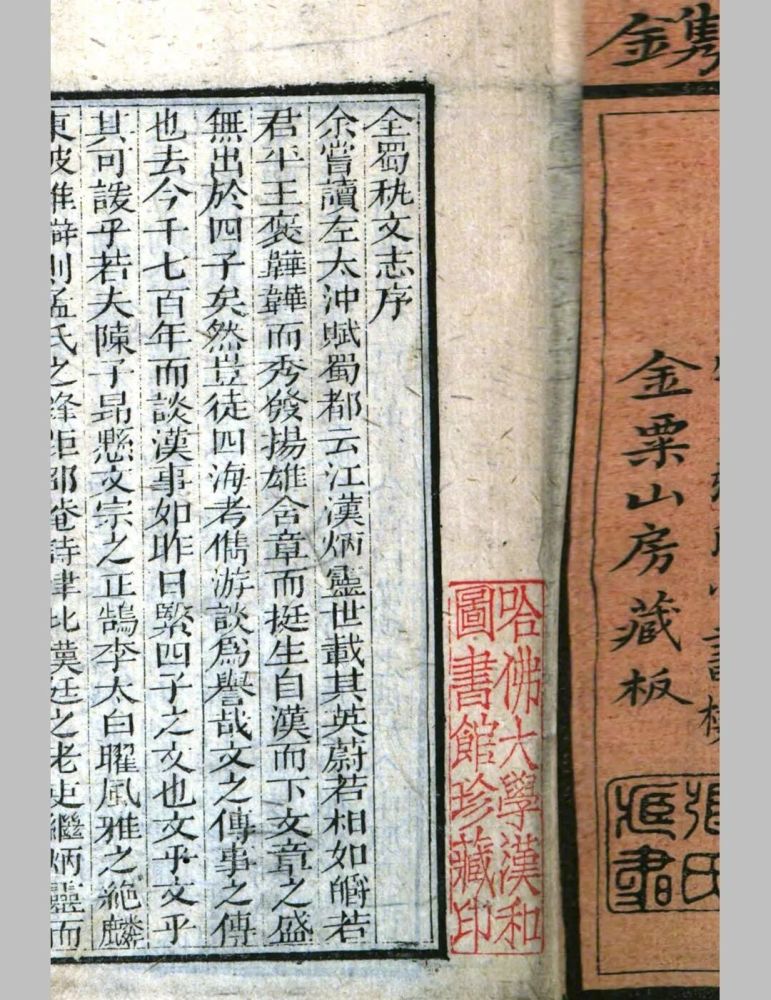 金
金粟山房藏板
哈佛大學漢和
圖書館珍藏印
全蜀秇文志序
余嘗讀左太沖賦蜀都云江漢炳靈世載其英蔚若相如皭若
君平王褒韡韡而秀發揚雄含章而挺生自漢而下文章之盛
無出於四子矣然豈徒四海考儁游談爲譽哉文之傳事之傳
也去今千七百年而談漢事如昨日緊四子之文也文乎文乎
其可諼乎若夫陳子昂懸文宗之正鵠李太白曜風雅之絶麟
東坡雄辯則孟氏之鋒距邵菴詩律比漢廷之老吏繼炳靈而